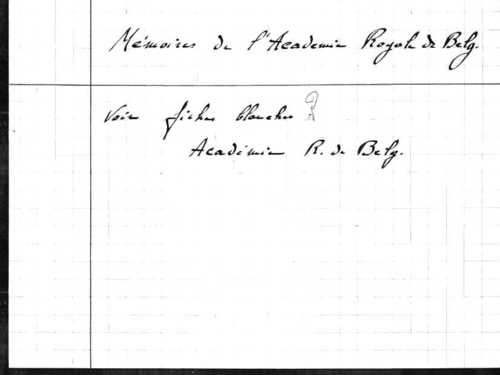 Mémoires de l'Academie Royale de Belg.
Voir fiches blanches
Académie R. de Belg.